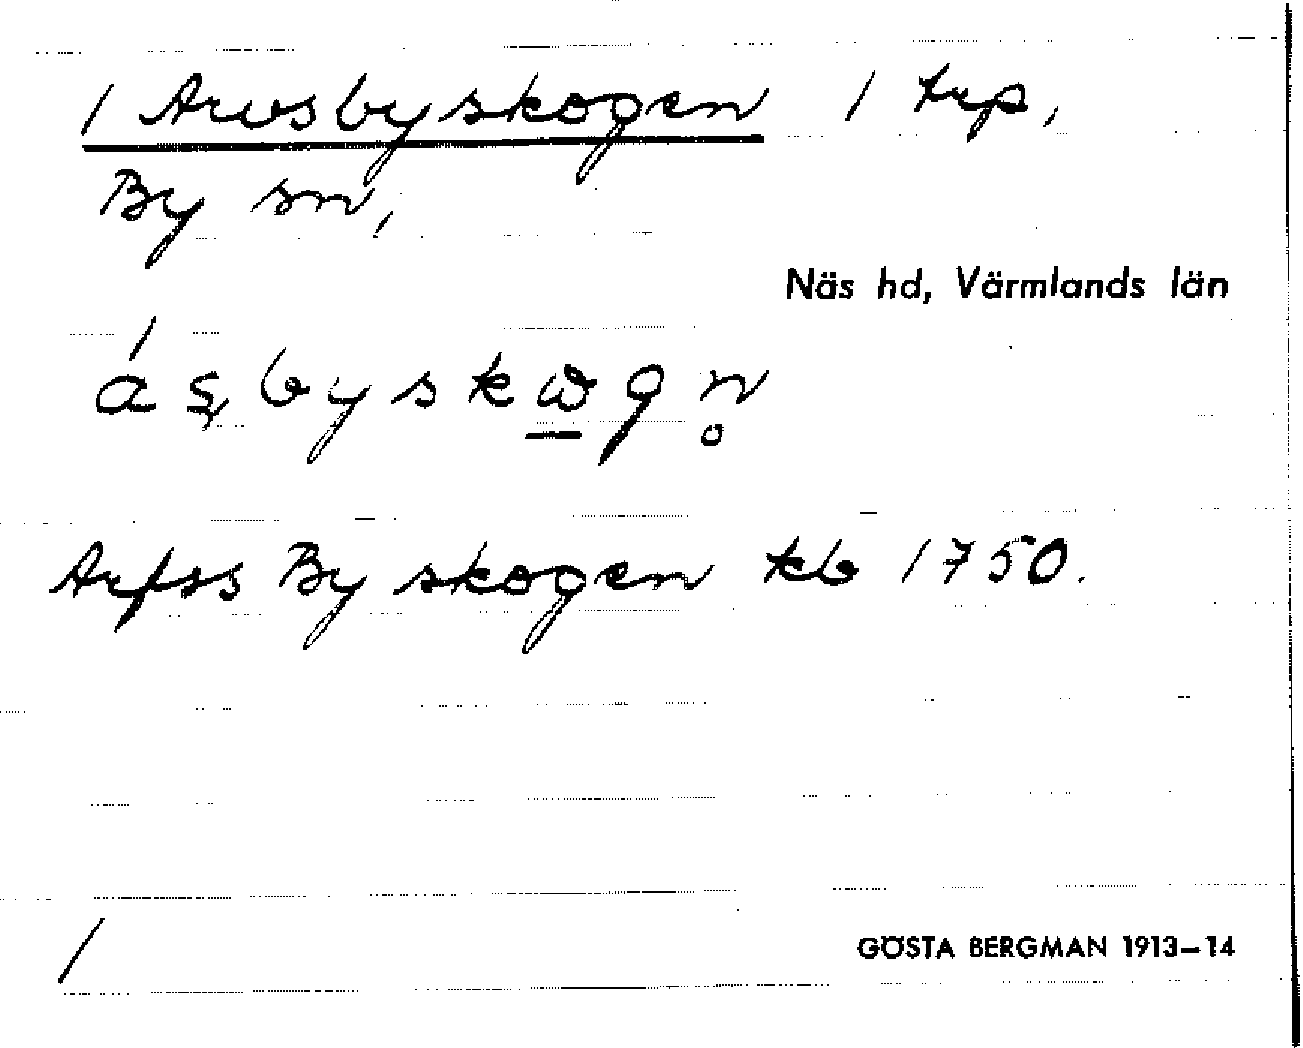 / Arvsbyskogen / trp,
By sn,
Näs hd, Värmlands län
áşbyskωgn̥
Arfss By skogen kb 1750.
/
GÖSTA BERGMAN 1913–14